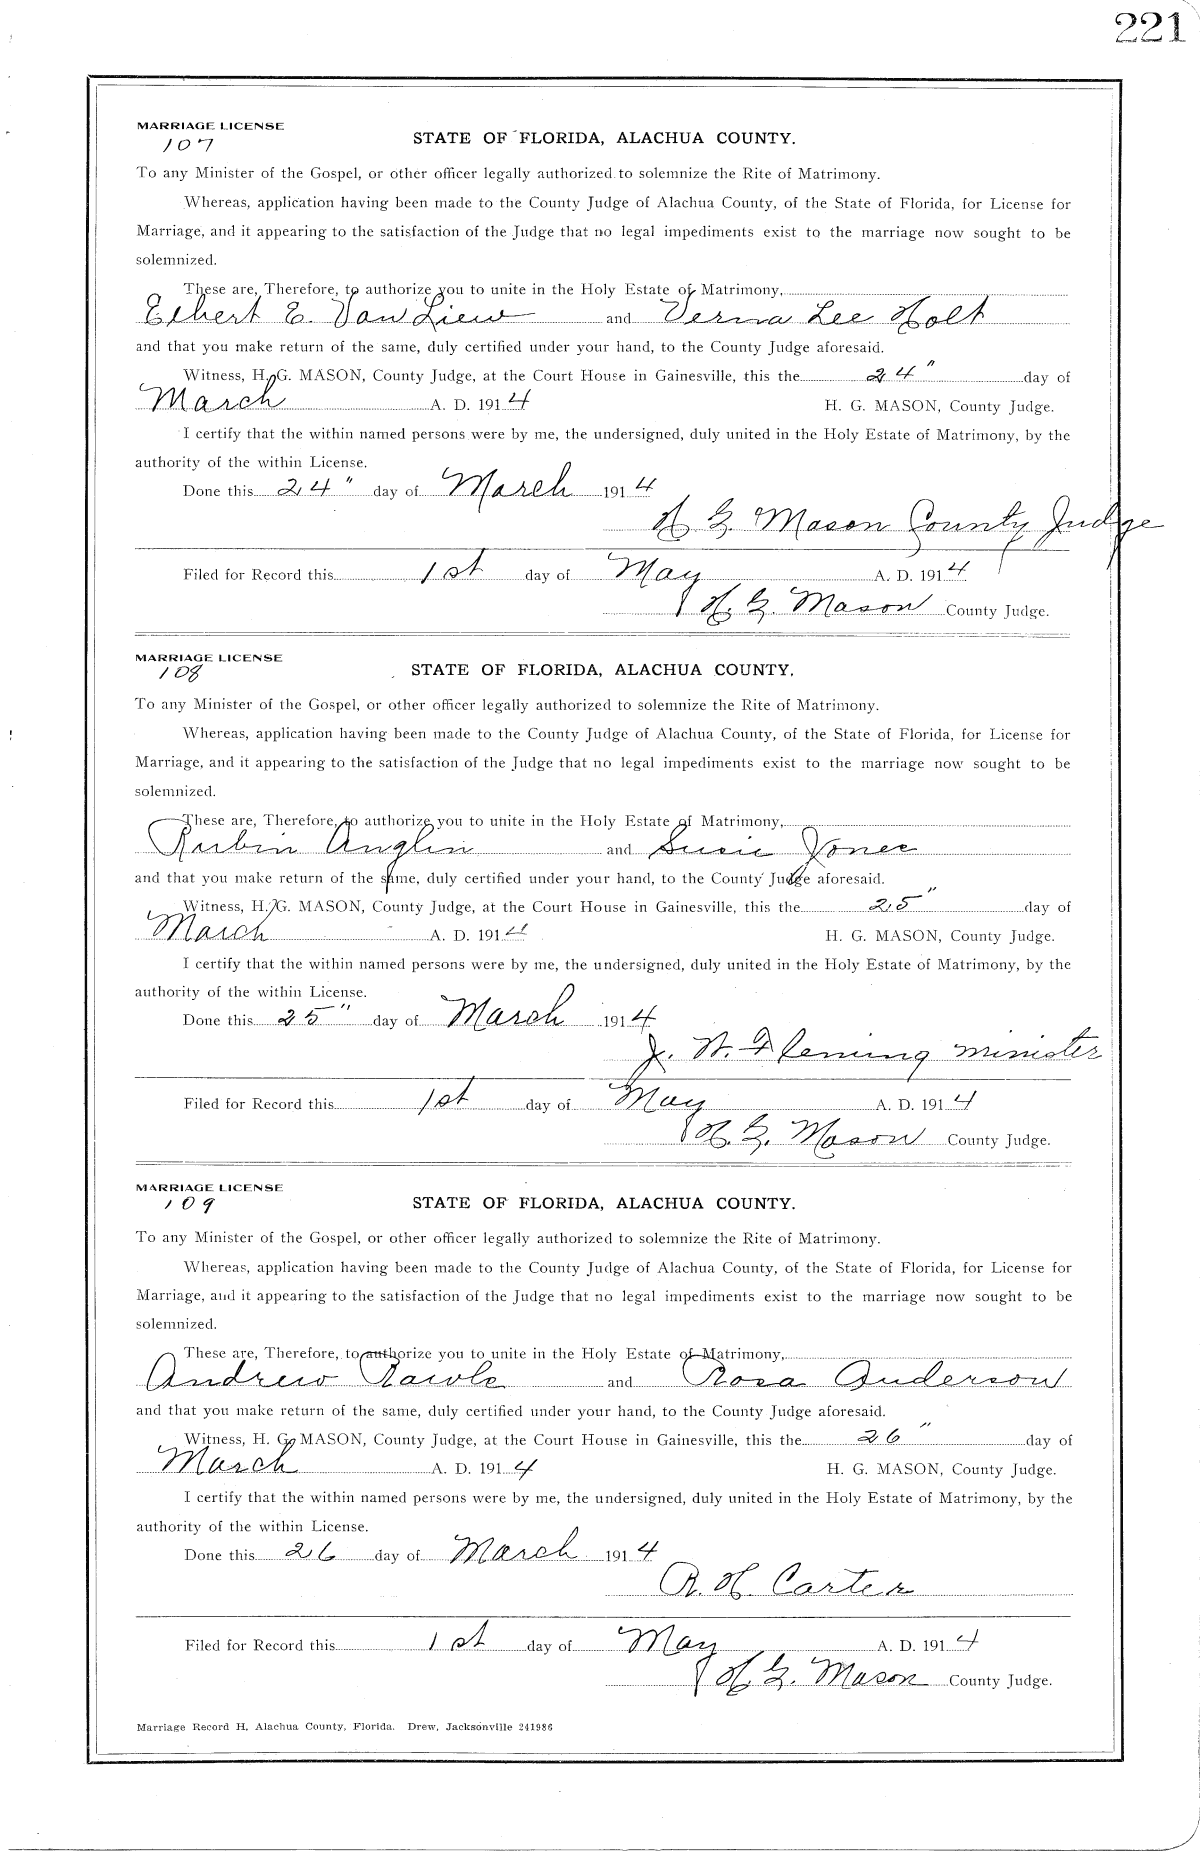 221
MARRIAGE LICENSE
107
STATE OF FLORIDA, ALACHUA COUNTY.
To any Minister of the Gospel, or other officer legally authorized to solemnize the Rite of Matrimony.
Whereas, application having been made to the County Judge of Alachua County, of the State of Florida, for License for
Marriage, and it appearing to the satisfaction of the Judge that no legal impediments exist to the marriage now sought to be
solemnized.
These are, Therefore, to authorize you to unite in the Holy Estate of Matrimony,
Elbert E. Van Liew and Verna Lee Holt
and that you make return of the same, duly certified under your hand, to the County Judge aforesaid.
Witness, H. G. MASON, County Judge, at the Court House in Gainesville, this the 24" day of
March A. D. 1914 H. G. MASON, County Judge.
I certify that the within named persons were by me, the undersigned, duly united in the Holy Estate of Matrimony, by the
authority of the within License.
Done this 24" day of March 1914
H. G. Mason County Judge
Filed for Record this 1st day of May A. D. 1914
H. G. Mason County Judge.
MARRIAGE LICENSE
108
STATE OF FLORIDA, ALACHUA COUNTY.
To any Minister of the Gospel, or other officer legally authorized to solemnize the Rite of Matrimony.
Whereas, application having been made to the County Judge of Alachua County, of the State of Florida, for License for
Marriage, and it appearing to the satisfaction of the Judge that no legal impediments exist to the marriage now sought to be
solemnized.
These are, Therefore, to authorize you to unite in the Holy Estate of Matrimony,
Rubin Anglin and Susie Jones
and that you make return of the same, duly certified under your hand, to the County Judge aforesaid.
Witness, H. G. MASON, County Judge, at the Court House in Gainesville, this the 25" day of
March A. D. 1914 H. G. MASON, County Judge.
I certify that the within named persons were by me, the undersigned, duly united in the Holy Estate of Matrimony, by the
authority of the within License.
Done this 25" day of March 1914
J. W. Fleming minister
Filed for Record this 1st day of May A. D. 1914
H. G. Mason County Judge.
MARRIAGE LICENSE
109
STATE OF FLORIDA, ALACHUA COUNTY.
To any Minister of the Gospel, or other officer legally authorized to solemnize the Rite of Matrimony.
Whereas, application having been made to the County Judge of Alachua County, of the State of Florida, for License for
Marriage, and it appearing to the satisfaction of the Judge that no legal impediments exist to the marriage now sought to be
solemnized.
These are, Therefore, to authorize you to unite in the Holy Estate of Matrimony,
Andrew Rawls and Rosa Anderson
and that you make return of the same, duly certified under your hand, to the County Judge aforesaid.
Witness, H. G. MASON, County Judge, at the Court House in Gainesville, this the 26" day of
March A. D. 1914 H. G. MASON, County Judge.
I certify that the within named persons were by me, the undersigned, duly united in the Holy Estate of Matrimony, by the
authority of the within License.
Done this 26 day of March 1914
R. H. Carter
Filed for Record this 1st day of May A. D. 1914
H. G. Mason County Judge.
Marriage Record H, Alachua County, Florida. Drew, Jacksonville 241986